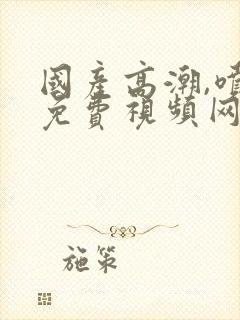 國產高潮,噴
免費視頻网
施策